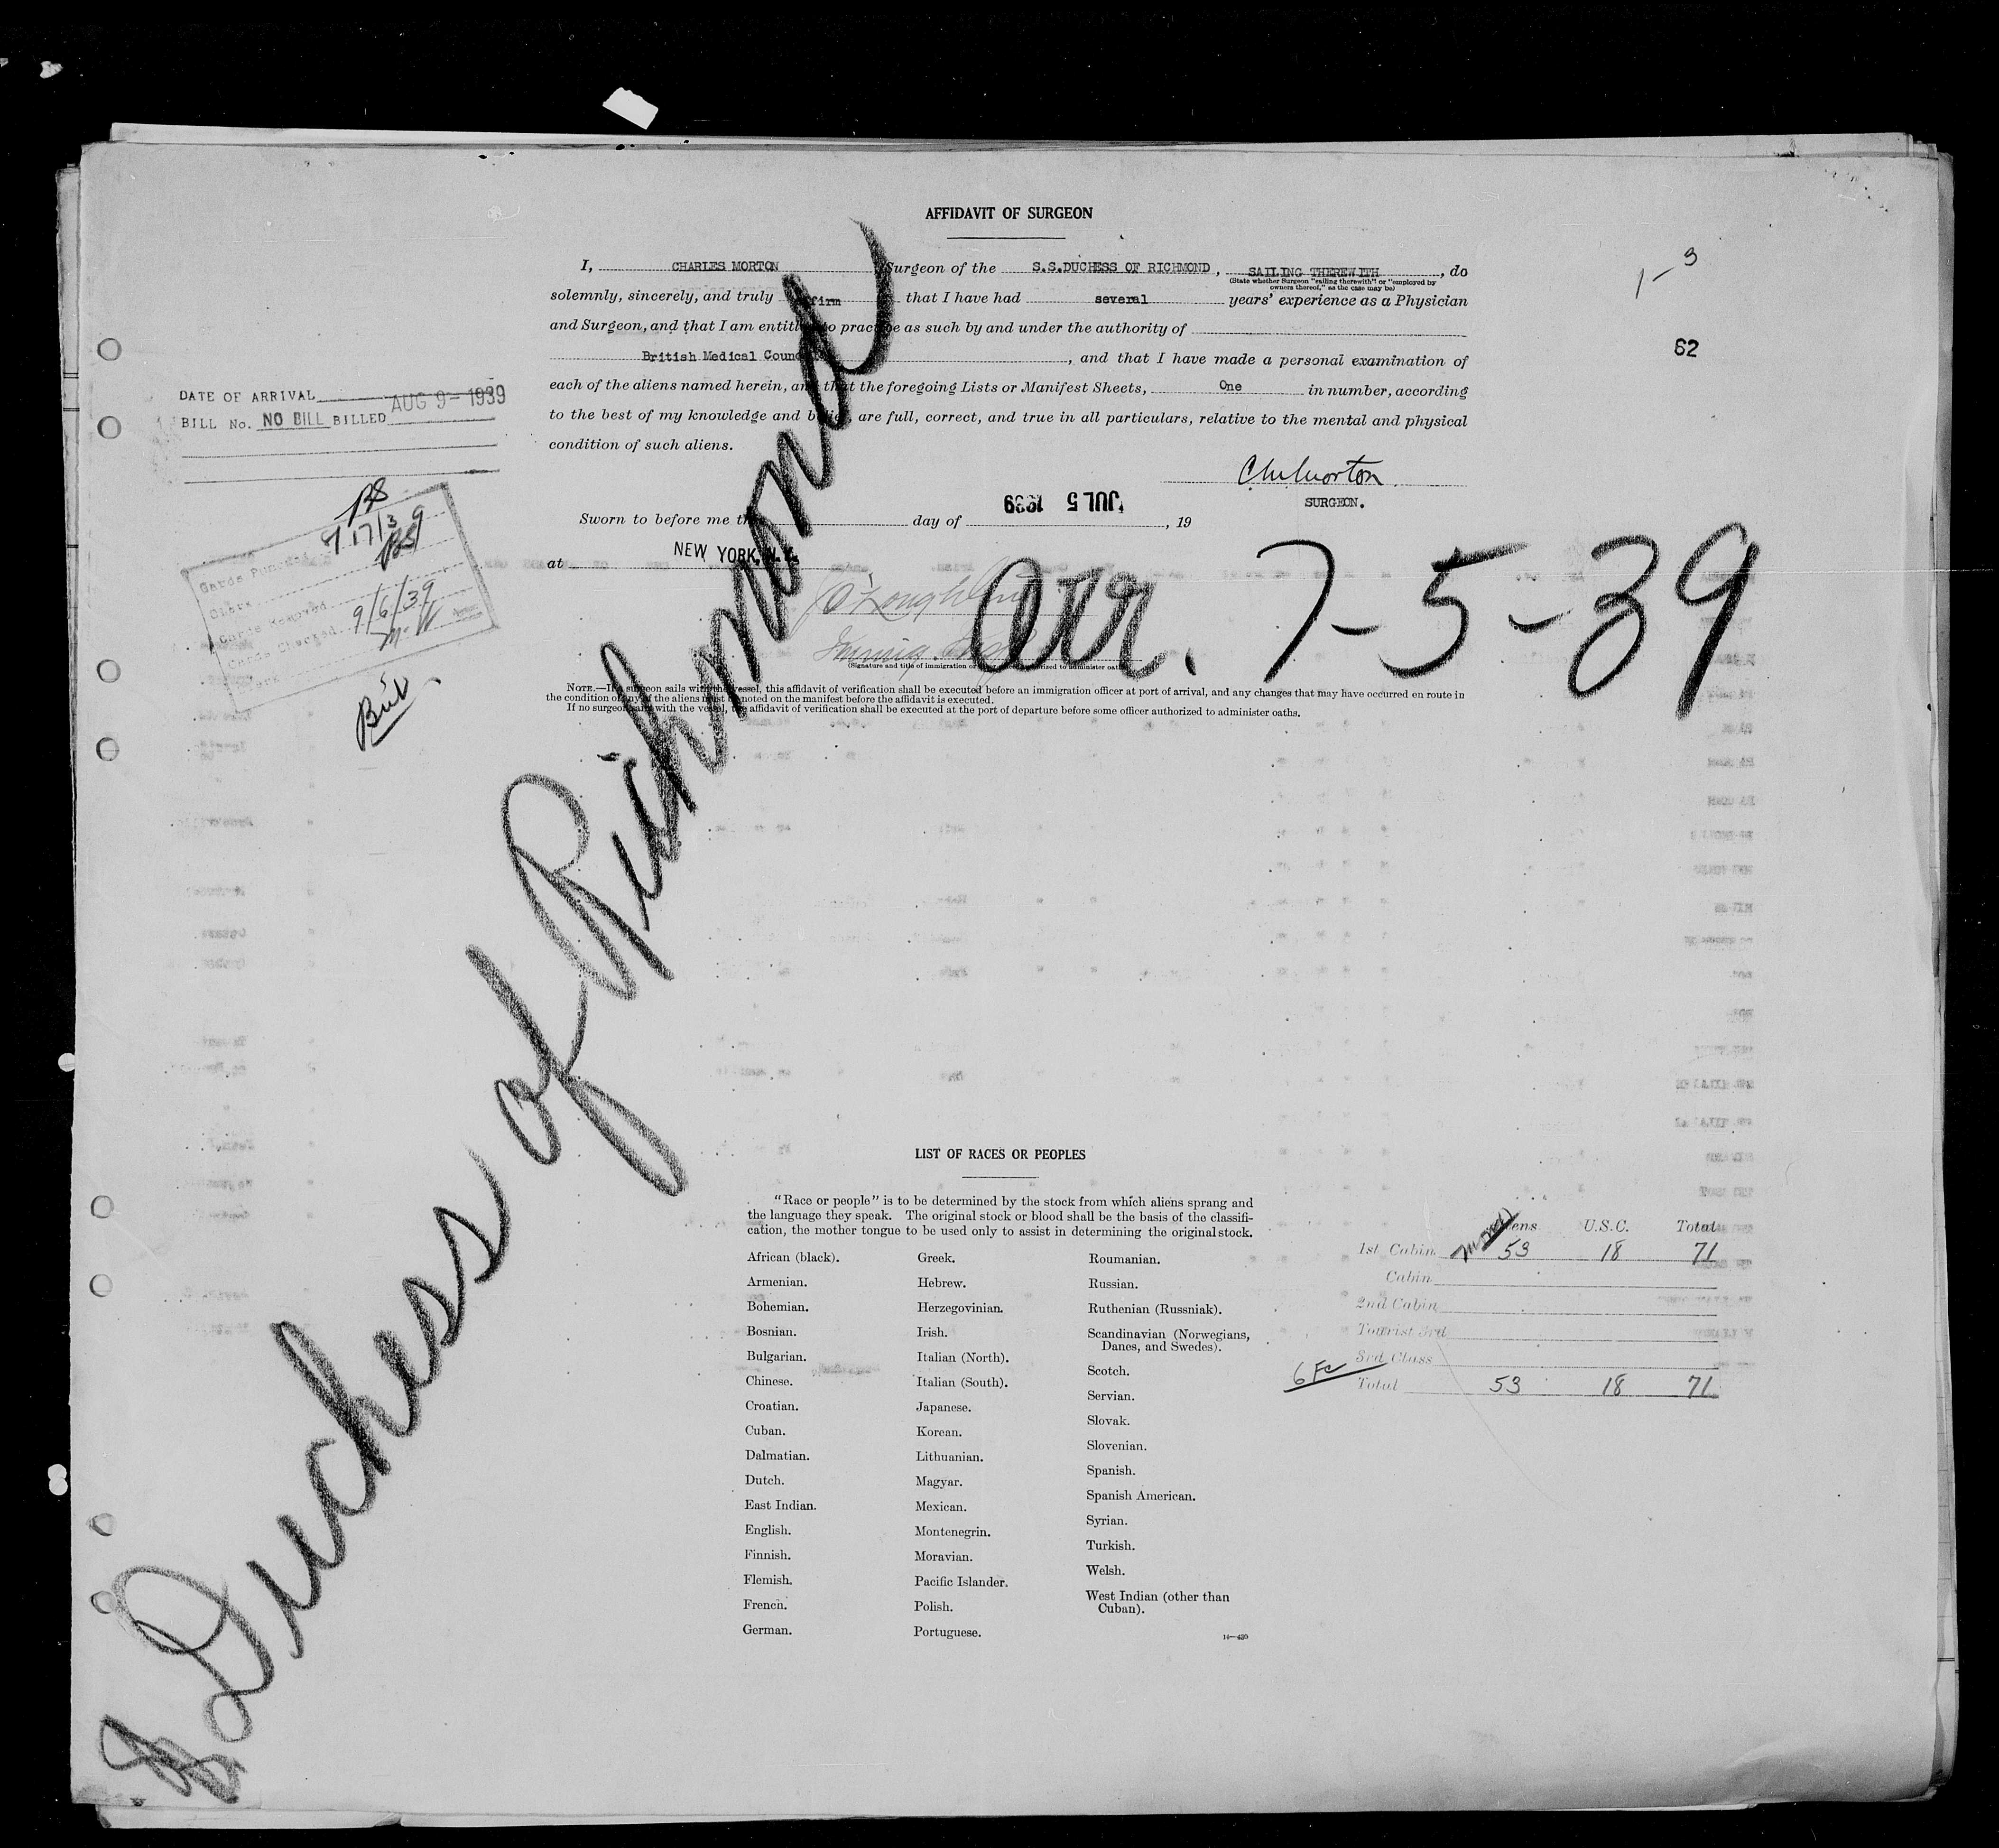 AFFIDAVIT OF SURGEON
I, CHARLES MORTON Surgeon of the S.S.DUCHESS OF RICHMOND, SAILING THEREWITH, do
(State whether Surgeon "sailing therewith" or "employed by
owners thereof," as the case may be)
solemnly, sincerely, and truly affirm that I have had several years' experience as a Physician
and Surgeon, and that I am entitled to practice as such by and under the authority of
British Medical Council, and that I have made a personal examination of
each of the aliens named herein, and that the foregoing Lists or Manifest Sheets, One in number, according
to the best of my knowledge and belief, are full, correct, and true in all particulars, relative to the mental and physical
condition of such aliens.
C M Morton
SURGEON.
Sworn to before me this day of JUL 5 1939, 19
at NEW YORK, N.Y.
O'Loughlin
Immig. Insp.
(Signature and title of immigration or authorized to administer oaths)
NOTE.—If a surgeon sails with the vessel, this affidavit of verification shall be executed before an immigration officer at port of arrival, and any changes that may have occurred en route in
the condition of any of the aliens must be noted on the manifest before the affidavit is executed.
If no surgeon sails with the vessel, the affidavit of verification shall be executed at the port of departure before some officer authorized to administer oaths.
1-3
62
DATE OF ARRIVAL
BILL No. NO BILL BILLED AUG 9-1939
Cards Punched 8/17/39
Clerk
Cards Removed
Cards Checked 9/6/39
Clerk
arr. 7-5-39
Duchess of Richmond
LIST OF RACES OR PEOPLES
"Race or people" is to be determined by the stock from which aliens sprang and
the language they speak. The original stock or blood shall be the basis of the classifi-
cation, the mother tongue to be used only to assist in determining the original stock.
African (black).
Armenian.
Bohemian.
Bosnian.
Bulgarian.
Chinese.
Croatian.
Cuban.
Dalmatian.
Dutch.
East Indian.
English.
Finnish.
Flemish.
French.
German.
Greek.
Hebrew.
Herzegovinian.
Irish.
Italian (North).
Italian (South).
Japanese.
Korean.
Lithuanian.
Magyar.
Mexican.
Montenegrin.
Moravian.
Pacific Islander.
Polish.
Portuguese.
Roumanian.
Russian.
Ruthenian (Russniak).
Scandinavian (Norwegians,
Danes, and Swedes).
Scotch.
Servian.
Slovak.
Slovenian.
Spanish.
Spanish American.
Syrian.
Turkish.
Welsh.
West Indian (other than
Cuban).
14—430
Aliens U.S.C. Total
1st Cabin 53 18 71
Cabin
2nd Cabin
Tourist 3rd
3rd Class
Total 53 18 71
6 Fc